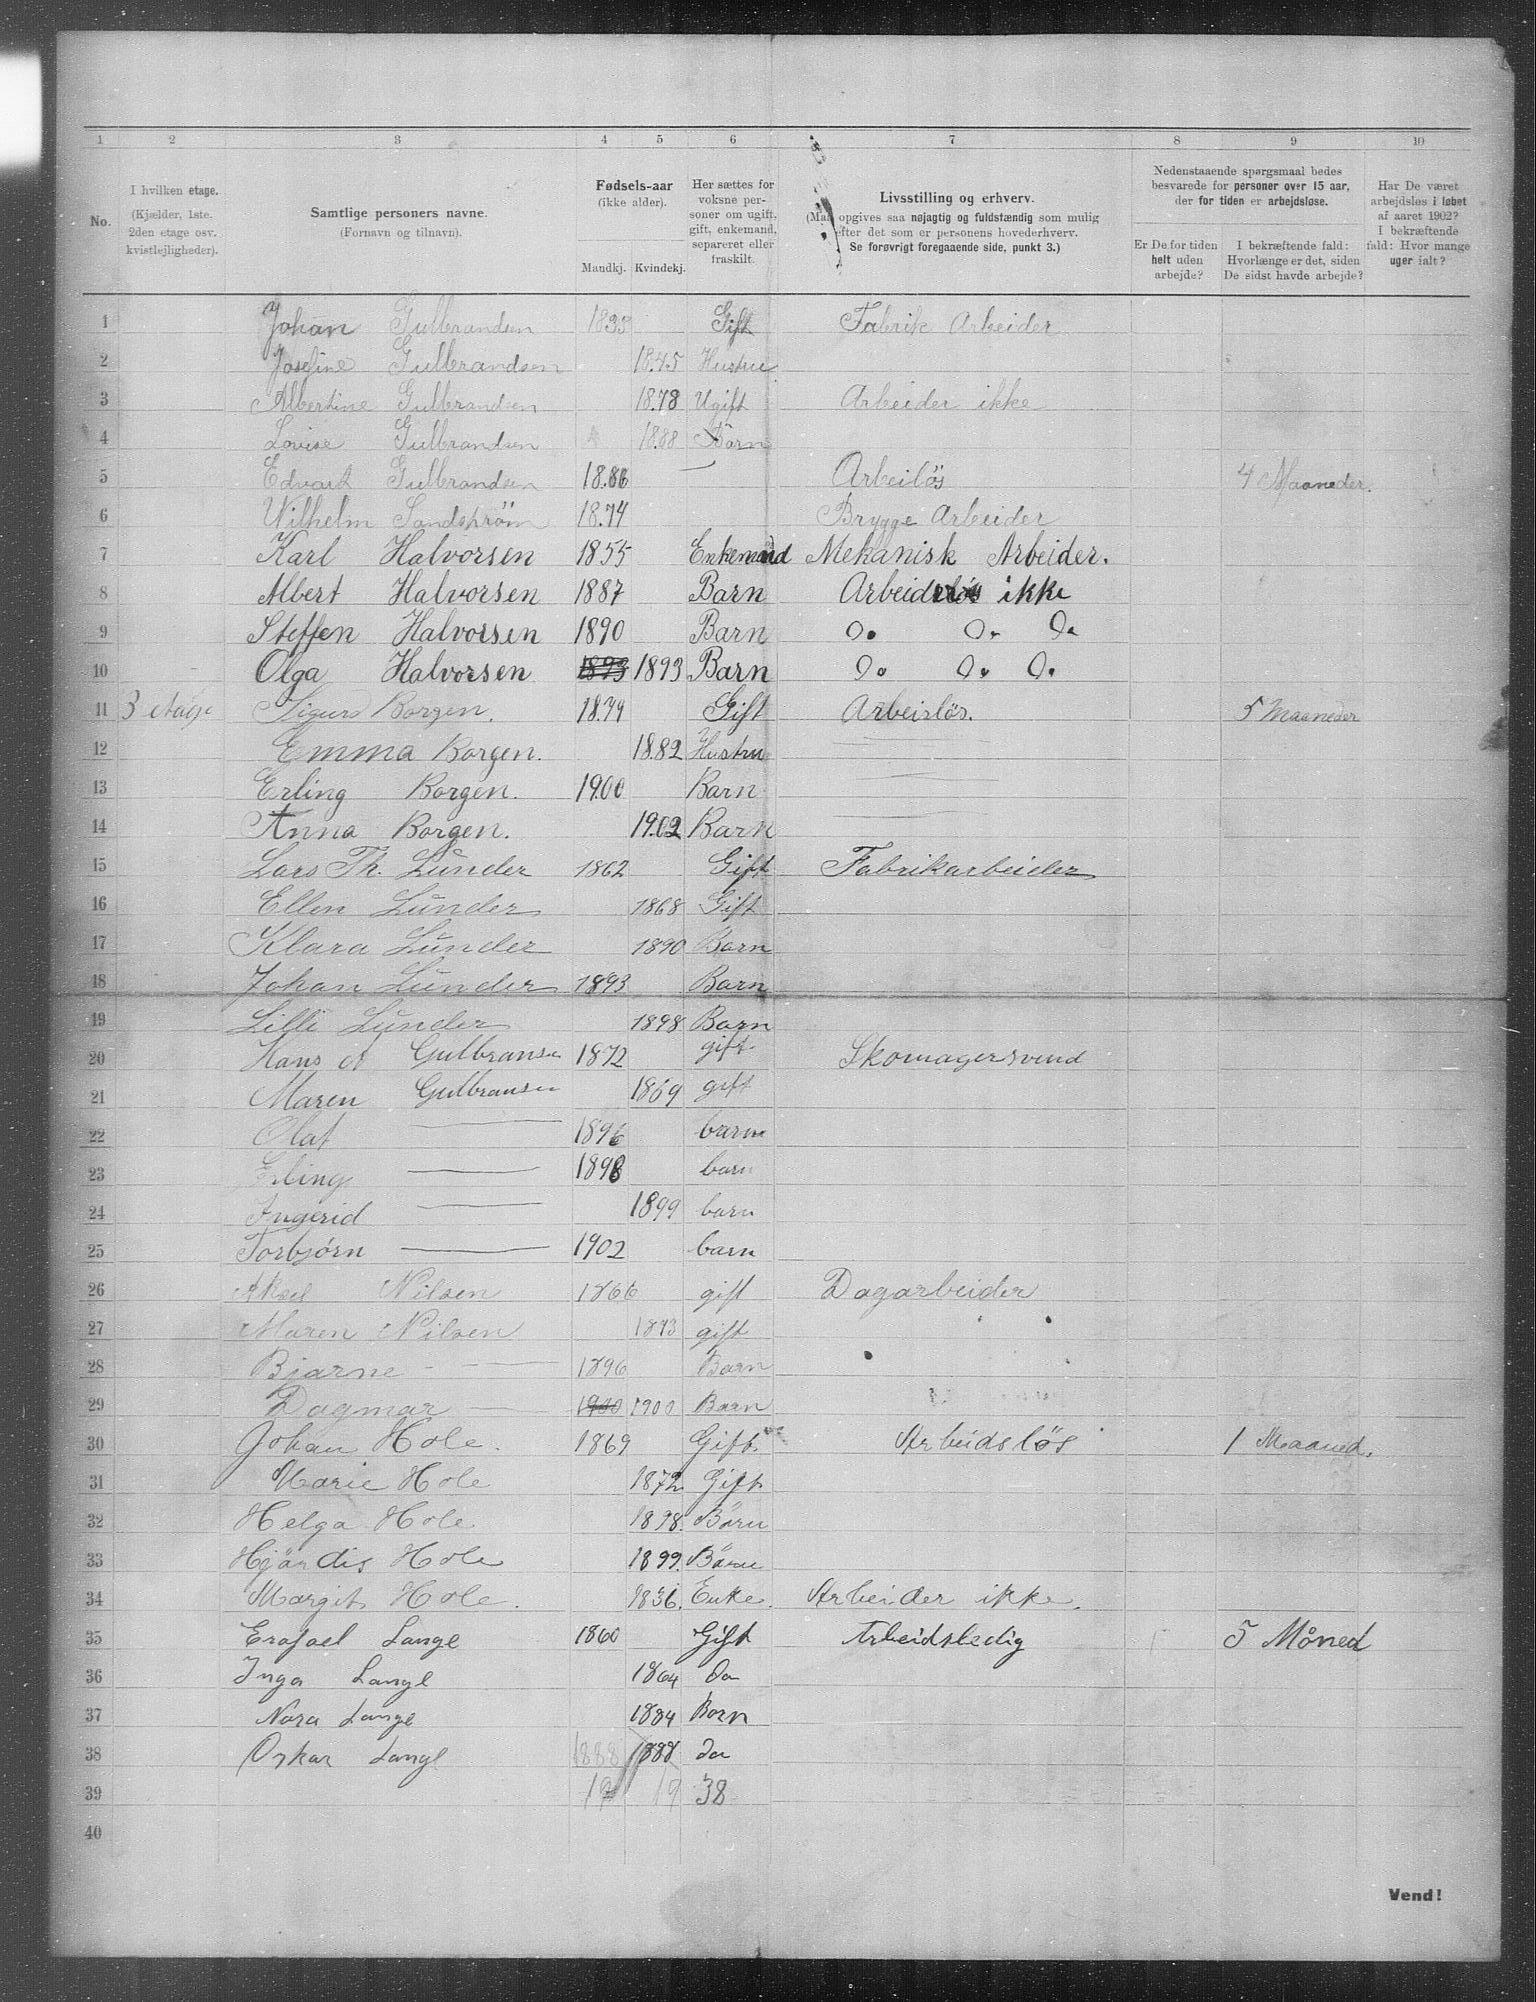 1 2 3 4 5 6 7 8 9 10
No.
I hvilken etage. (Kjælder, 1ste. 2den etage osv. kvistlejligheder).
Samtlige personers navne. (Fornavn og tilnavn).
Fødsels-aar (ikke alder). Mandkj. Kvindekj.
Her sættes for voksne personer om ugift, gift, enkemand, separeret eller fraskilt.
Livsstilling og erhverv. opgives saa nøjagtig og fuldstændig som mulig efter det som er personens hovederhverv. Se forøvrigt foregaaende side, punkt 3.)
Nedenstaaende spørgsmaal bedes besvarede for personer over 15 aar, der for tiden er arbejdsløse.
Er De for tiden helt uden arbejde?
I bekræftende fald: Hvorlænge er det, siden De sidst havde arbejde?
Har De været arbejdsløs i løbet af aaret 1902? I bekræftende fald: Hvor mange uger ialt?
1 Johan Gulbrandsen 1835 Gift Fabrik Arbeider
2 Josefine Gulbrandsen 1845 Hustru
3 Albertine Gulbrandsen 1878 Ugift Arbeider ikke
4 Lovise Gulbrandsen 1888 Barn
5 Edvard Gulbrandsen 1886 — Arbeilös 4 Maaneder.
6 Wilhelm Sandström 1874 Brygge Arbeider
7 Karl Halvorsen 1855 Enkemand Mekanisk Arbeider.
8 Albert Halvorsen 1887 Barn ikke
9 Steffen Halvorsen 1890 Barn Do Do Do
10 Olga Halvorsen 1893 1893 Barn Do Do Do
11 3 etage Sigurd Borgen. 1879 Gift Arbeislös. 5 Maaneder
12 Emma Borgen. 1882 Hustru
13 Erling Borgen. 1900 Barn
14 Anna Borgen. 1902 Barn
15 Lars Th. Lunder 1862 Gift Fabrikarbeider
16 Ellen Lunder 1868 Gift
17 Klara Lunder 1890 Barn
18 Johan Lunder 1893 Barn
19 Lilli Lunder 1898 Barn
20 Hans A Gulbransen 1872 gift Skomagersvend
21 Maren Gulbransen 1869 gift
22 Olaf — 1896 barn
23 Erling — 1898 barn
24 Ingerid — 1899 barn
25 Torbjørn — 1902 barn
26 Aksel Nilsen 1866 gift Dagarbeider
27 Maren Nilsen 1873 gift
28 Bjarne — — 1896 Barn
29 Dagmar — 1900 1900 Barn
30 Johan Hole. 1869 Gift. Arbeidslös 1 Maaned.
31 Marie Hole 1872 Gift
32 Helga Hole 1898. Börn
33 Hjördis Hole 1899. Börn
34 Margit Hole. 1836. Enke. Arbeider ikke.
35 Lange 1860 Gift Arbeidsledig 5 Måned
36 Inga Lange 1864 Do
37 Nora Lange 1884 Barn
38 Oskar Lange 1888 1888 Do
39 19 19 38
40
Vend!